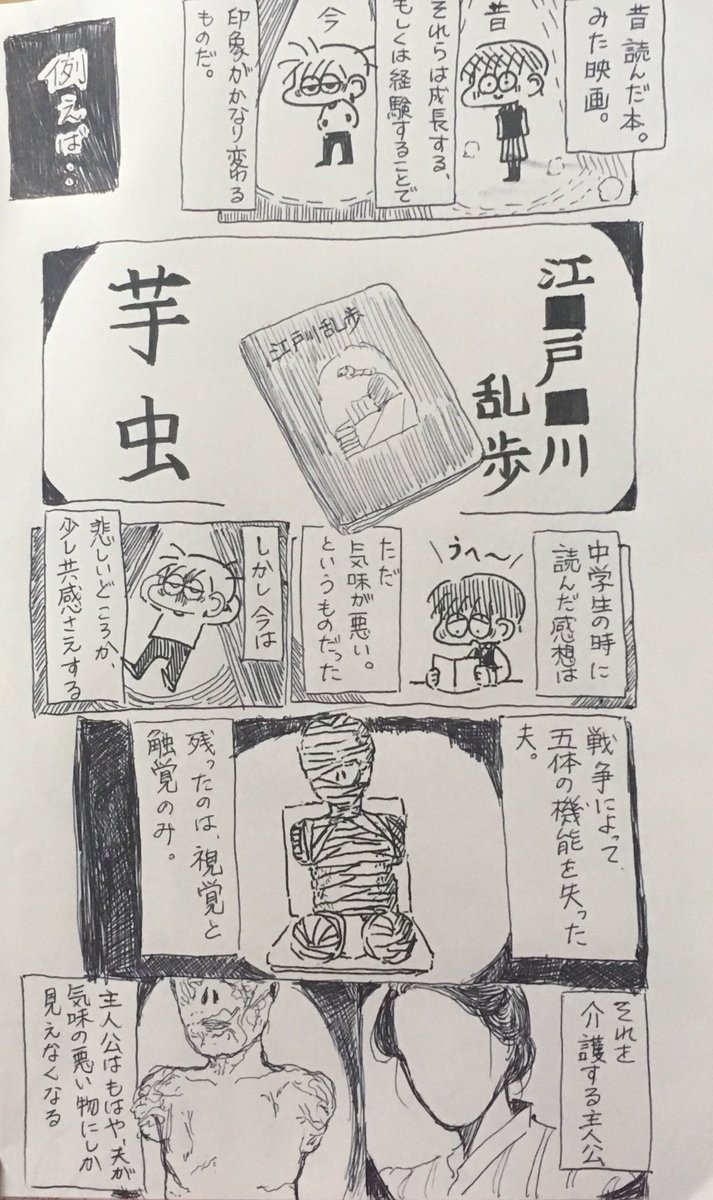 昔読んだ本。
みた映画。
昔
それらは成長する、
もしくは経験することで
今
印象がかなり変わる
ものだ。
例えば‥
江■戸■川
乱歩
江戸川乱歩
芋虫
中学生の時に
読んだ感想は
うへ〜
ただ
気味が悪い。
というものだった
しかし今は
悲しいどころか、
少し共感さえする
戦争によって
五体の機能を失った
夫。
残ったのは、視覚と
触覚のみ。
それを
介護する主人公
主人公はもはや、夫が
気味の悪い物にしか
見えなくなる